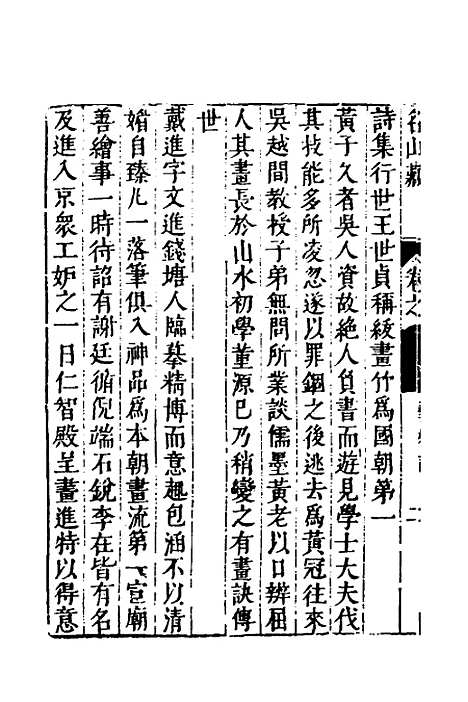 名山藏 卷之
詩集行世王世貞稱紱畫竹爲國朝第一
黃子久者吳人資故絶人負書而遊見學士大夫伐
其技能多所凌忽遂以罪錮之後逃去爲黃冠往來
吳越間教授子弟無問所業談儒墨黃老以口辨屈
人其畫長於山水初學董源已乃稍變之有畫訣傳
世
戴進字文進錢塘人臨摹精博而意趣包涵不以清
媚自臻凡一落筆俱入神品爲本朝畫流第一宣廟
善繪事一時待詔有謝廷循倪端石銳李在皆有名
及進入京衆工妒之一日仁智殿呈畫進特以得意